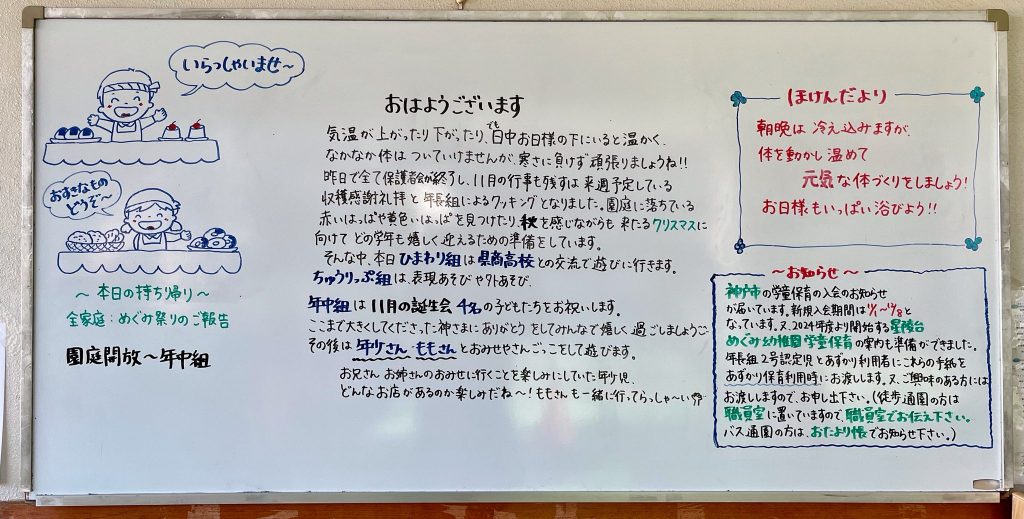 いらっしゃいませ～
おすきなもの
どうぞ～
～本日の持ち帰り～
全家庭：めぐみ祭りのご報告
園庭開放～年中組
おはようございます
気温が上がったり下がったり、でも日中お日様の下にいると温かく、
なかなか体はついていけませんが、寒さに負けず頑張りましょうね!!
昨日で全て保護者会が終了し、11月の行事も残すは来週予定している
収穫感謝礼拝と年長組によるクッキングとなりました。園庭に落ちている
赤いはっぱや黄色いはっぱを見つけたり、秋を感じながらも来たるクリスマスに
向けてどの学年も嬉しく迎えるための準備をしています。
そんな中、本日ひまわり組は県商高校との交流で遊びに行きます。
ちゅうりっぷ組は、表現あそびや外あそび、
年中組は11月の誕生会4名の子どもたちをお祝いします。
ここまで大きくしてくださった神さまにありがとうをしてみんなで嬉しく過ごしましょう
その後は年少さん、ももさんとおみせやさんごっこをして遊びます。
お兄さんお姉さんのおみせに行くことを楽しみにしていた年少児、
どんなお店があるのか楽しみだね～！ももさんも一緒に行ってらっしゃ～い
ほけんだより
朝晩は冷え込みますが、
体を動かし温めて
元気な体づくりをしましょう！
お日様もいっぱい浴びよう!!
～お知らせ～
神戸市の学童保育の入会のお知らせ
が届いています。新規入会期間は
なっています。又、2024年度より開始する星陵台
めぐみ幼稚園学童保育の案内も準備ができました。
年長組2号認定児とあずかり利用者にこれらの手紙を
あずかり保育利用時にお渡します。又、ご興味のある方には
お渡ししますので、お申し出下さい。(徒歩通園の方は
職員室に置いていますので、職員室でお伝え下さい。
バス通園の方は、おたより帳でお知らせ下さい。)